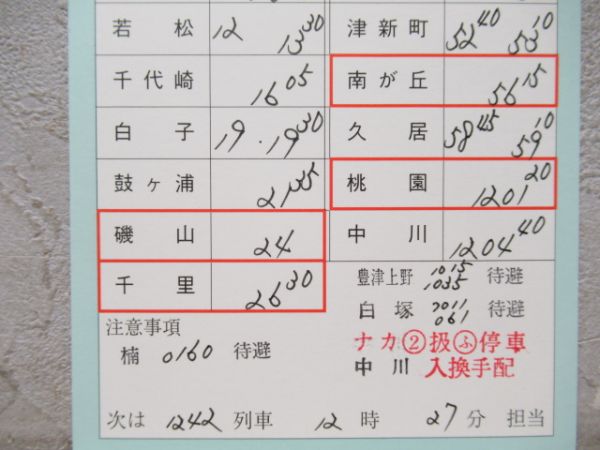 若松 12 13 30
千代崎 16 05
白子 19 . 19 30
鼓ヶ浦 21 35
磯山 24
千里 26 30
注意事項
楠 0160 待避
津新町 52 40 53 10
南が丘 56 15
久居 58 45 59 10
桃園 1201 20
中川 1204 40
豊津上野 1015 1035 待避
白塚 2011 061 待避
ナカ②扱㋫停車
中川 入換手配
次は 1242 列車 12 時 27 分 担当